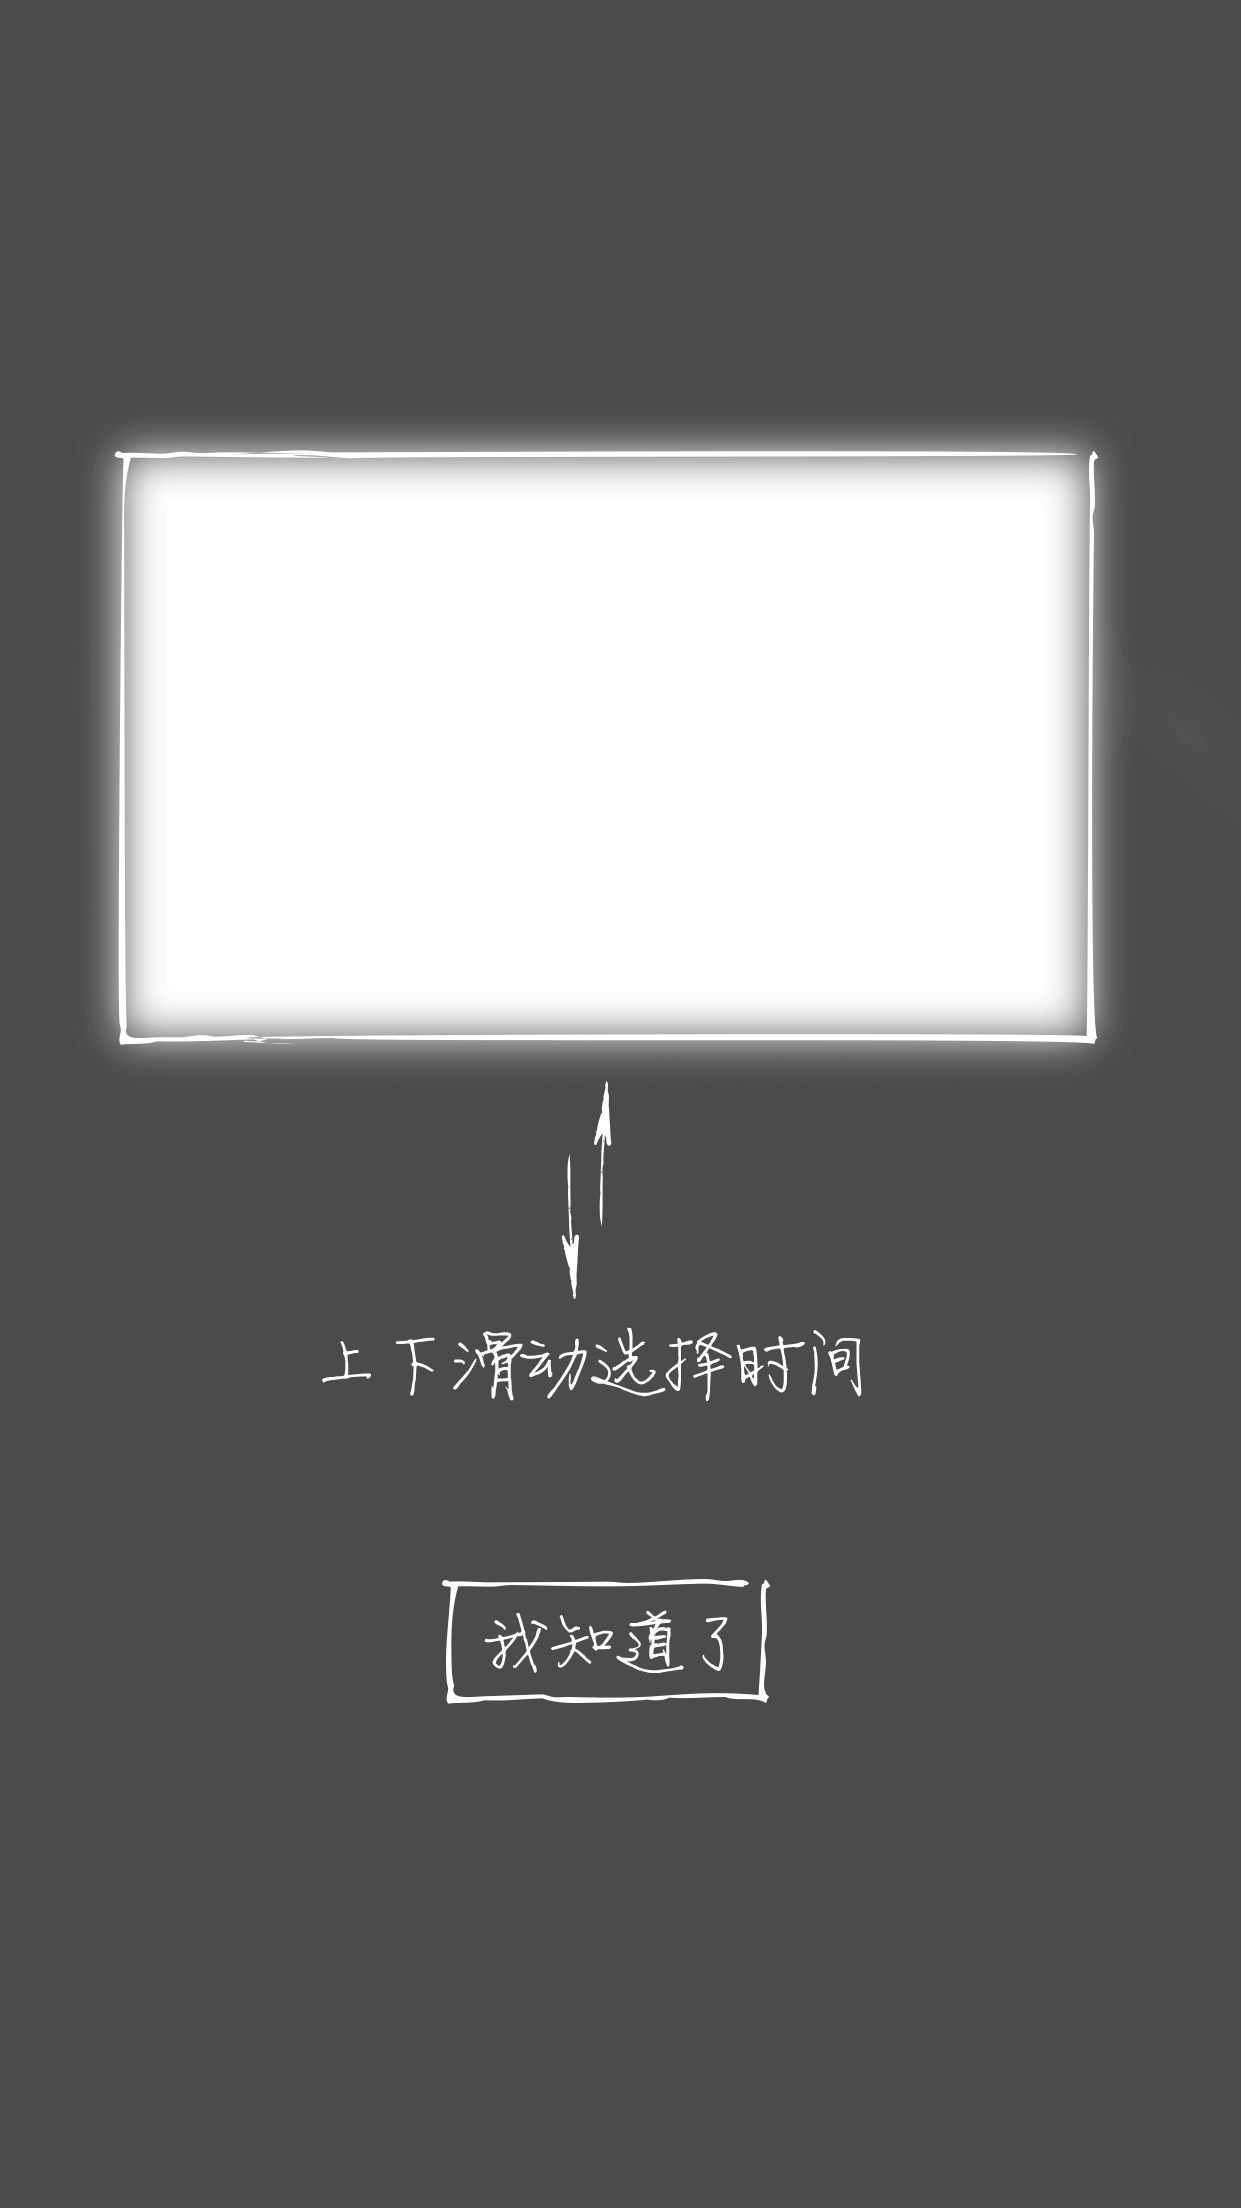 上下滑动选择时间
我知道了